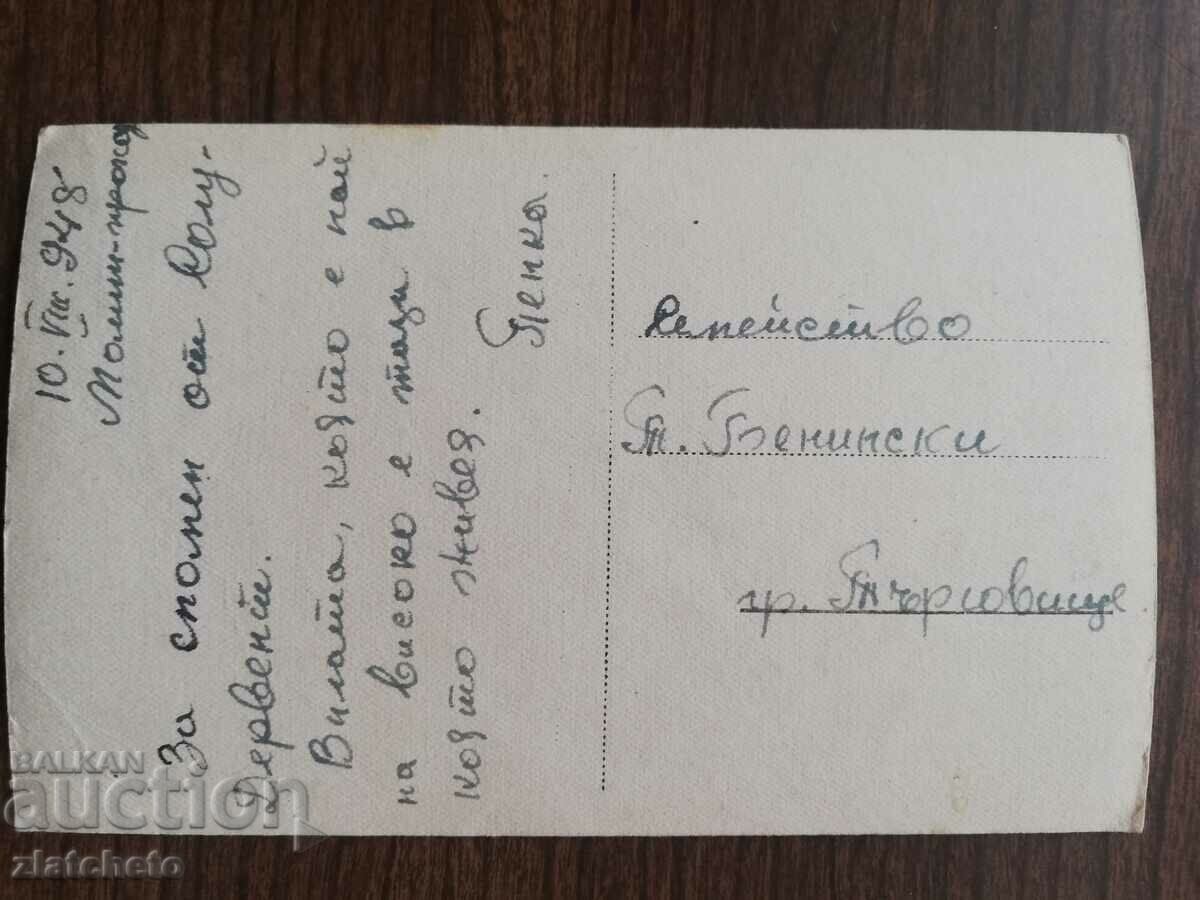 10. VIII. 948
Момин-проход
За спомен от Солу-
Дервент.
Вилата, която е най
на високо е тази в
която живея.
Пенка.
Семейство
Т. Бенински
гр. Търговище
BALKAN
auction
zlatcheto